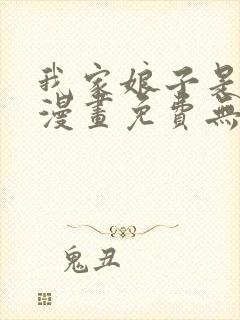 我家娘子是
漫畫免費無
鬼丑